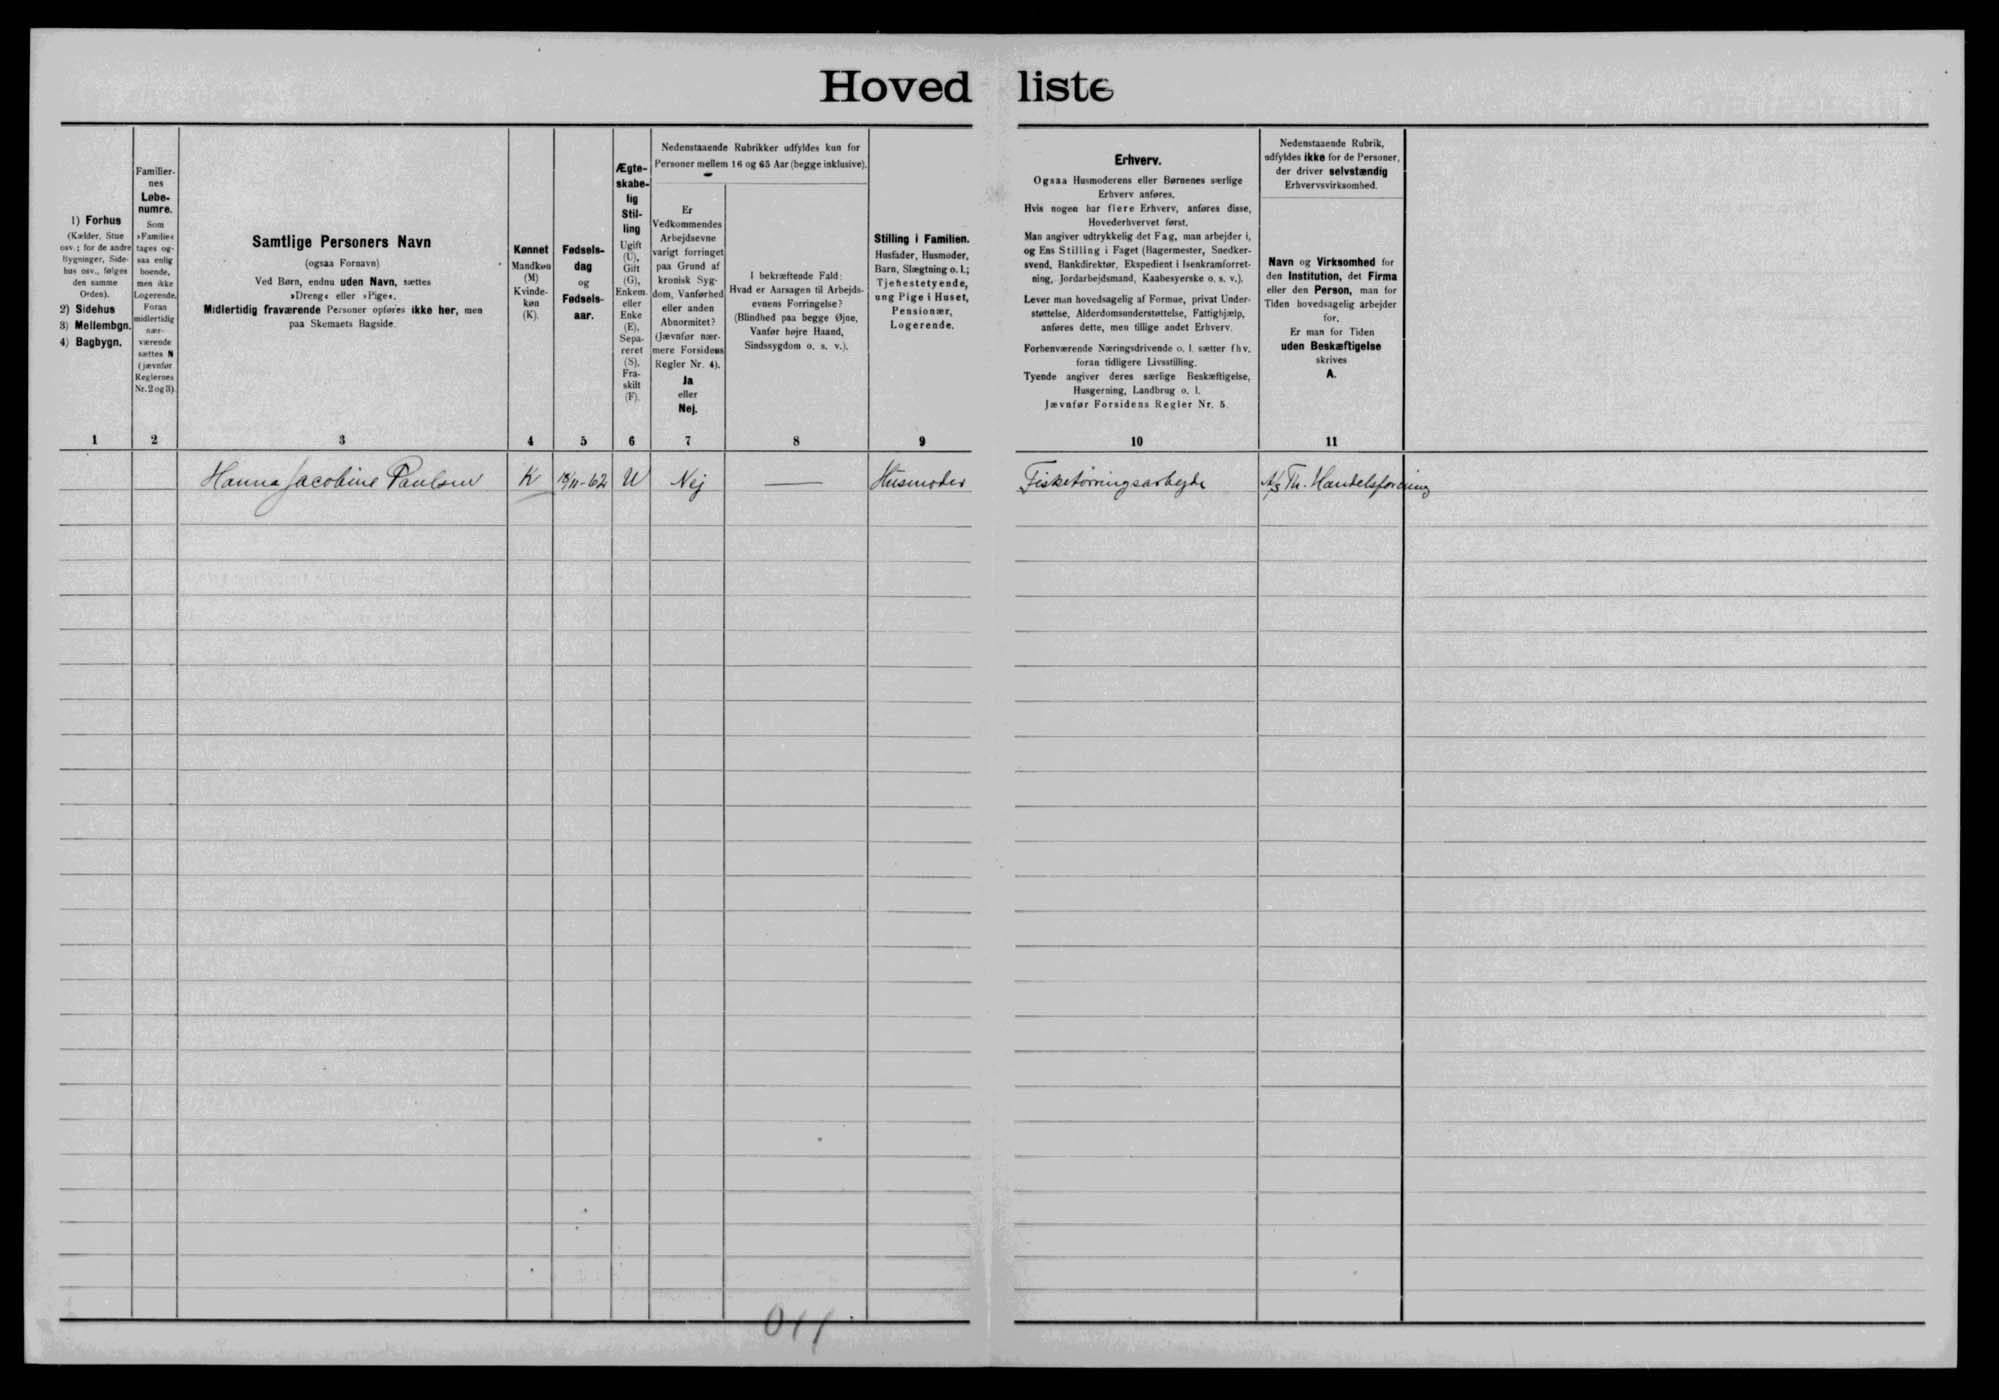 Hovedliste
1) Forhus
(Kælder, Stue
osv.; for de andre
Bygninger, Side-
hus osv., følges
den samme
Orden).
2) Sidehus
3) Mellembgn.
4) Bagbygn.
Familier-
nes
Løbe-
numre.
Som
»Familie«
tages og-
saa enlig
boende,
men ikke
Logerende.
Foran
midlertidig
nær-
værende
sættes N
(jævnfør
Reglernes
Nr. 2 og 3).
Samtlige Personers Navn
(ogsaa Fornavn)
Ved Børn, endnu uden Navn, sættes
»Dreng« eller »Pige«.
Midlertidig fraværende Personer opføres ikke her, men
paa Skemaets Bagside.
Kønnet
Mandkøn
(M)
Kvinde-
køn
(K).
Fødsels-
dag
og
Fødsels-
aar.
Ægte-
skabe-
lig
Stil-
ling
Ugift
(U),
Gift
(G),
Enkem.
eller
Enke
(E),
Sepa-
reret
(S),
Fra-
skilt
(F).
Nedenstaaende Rubrikker udfyldes kun for
Personer mellem 16 og 65 Aar (begge inklusive).
Er
Vedkommendes
Arbejdsevne
varigt forringet
paa Grund af
kronisk Syg-
dom, Vanførhed
eller anden
Abnormitet?
(Jævnfør nær-
mere Forsidens
Regler Nr. 4).
Ja
eller
Nej.
I bekræftende Fald:
Hvad er Aarsagen til Arbejds-
evnens Forringelse?
(Blindhed paa begge Øjne,
Vanfør højre Haand,
Sindssygdom o. s. v.).
Stilling i Familien.
Husfader, Husmoder,
Barn, Slægtning o. l.;
Tjenestetyende,
ung Pige i Huset,
Pensionær,
Logerende.
Erhverv.
Ogsaa Husmoderens eller Børnenes særlige
Erhverv anføres.
Hvis nogen har flere Erhverv, anføres disse,
Hovederhvervet først.
Man angiver udtrykkelig det Fag, man arbejder i,
og Ens Stilling i Faget (Bagermester, Snedker-
svend, Bankdirektør, Ekspedient i Isenkramforret-
ning, Jordarbejdsmand, Kaabesyerske o. s. v.).
Lever man hovedsagelig af Formue, privat Under-
støttelse, Alderdomsunderstøttelse, Fattighjælp,
anføres dette, men tillige andet Erhverv.
Forhenværende Næringsdrivende o. l. sætter fhv.
foran tidligere Livsstilling.
Tyende angiver deres særlige Beskæftigelse,
Husgerning, Landbrug o. l.
Jævnfør Forsidens Regler Nr. 5.
Nedenstaaende Rubrik,
udfyldes ikke for de Personer,
der driver selvstændig
Erhvervsvirksomhed.
Navn og Virksomhed for
den Institution, det Firma
eller den Person, man for
Tiden hovedsagelig arbejder
for.
Er man for Tiden
uden Beskæftigelse
skrives
A.
1 2 3 4 5 6 7 8 9 10 11
Hanna Jacobine Paulsen K /11-62 U Nej — Husmoder Fisketørringsarbejde A/S Th. Handelsforening